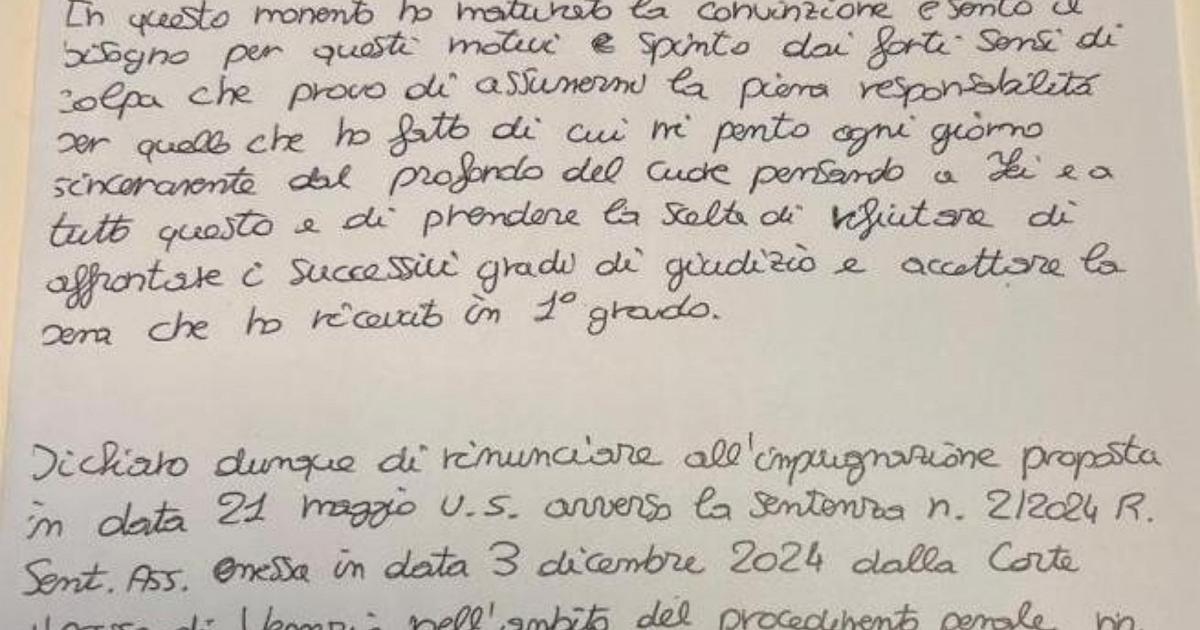 In questo momento ho maturato la convinzione e sento il
bisogno per questi motivi e spinto dai forti sensi di
colpa che provo di assumermi la piena responsabilità
per quello che ho fatto di cui mi pento ogni giorno
sinceramente dal profondo del cuore pensando a Lei e a
tutto questo e di prendere la scelta di rifiutare di
affrontare i successivi gradi di giudizio e accettare la
pena che ho ricevuto in 1° grado.
Dichiaro dunque di rinunciare all'impugnazione proposta
in data 21 maggio U.S. avverso la sentenza n. 2/2024 R.
Sent. Ass. emessa in data 3 dicembre 2024 dalla Corte
d'assise di Venezia nell'ambito del procedimento penale n.